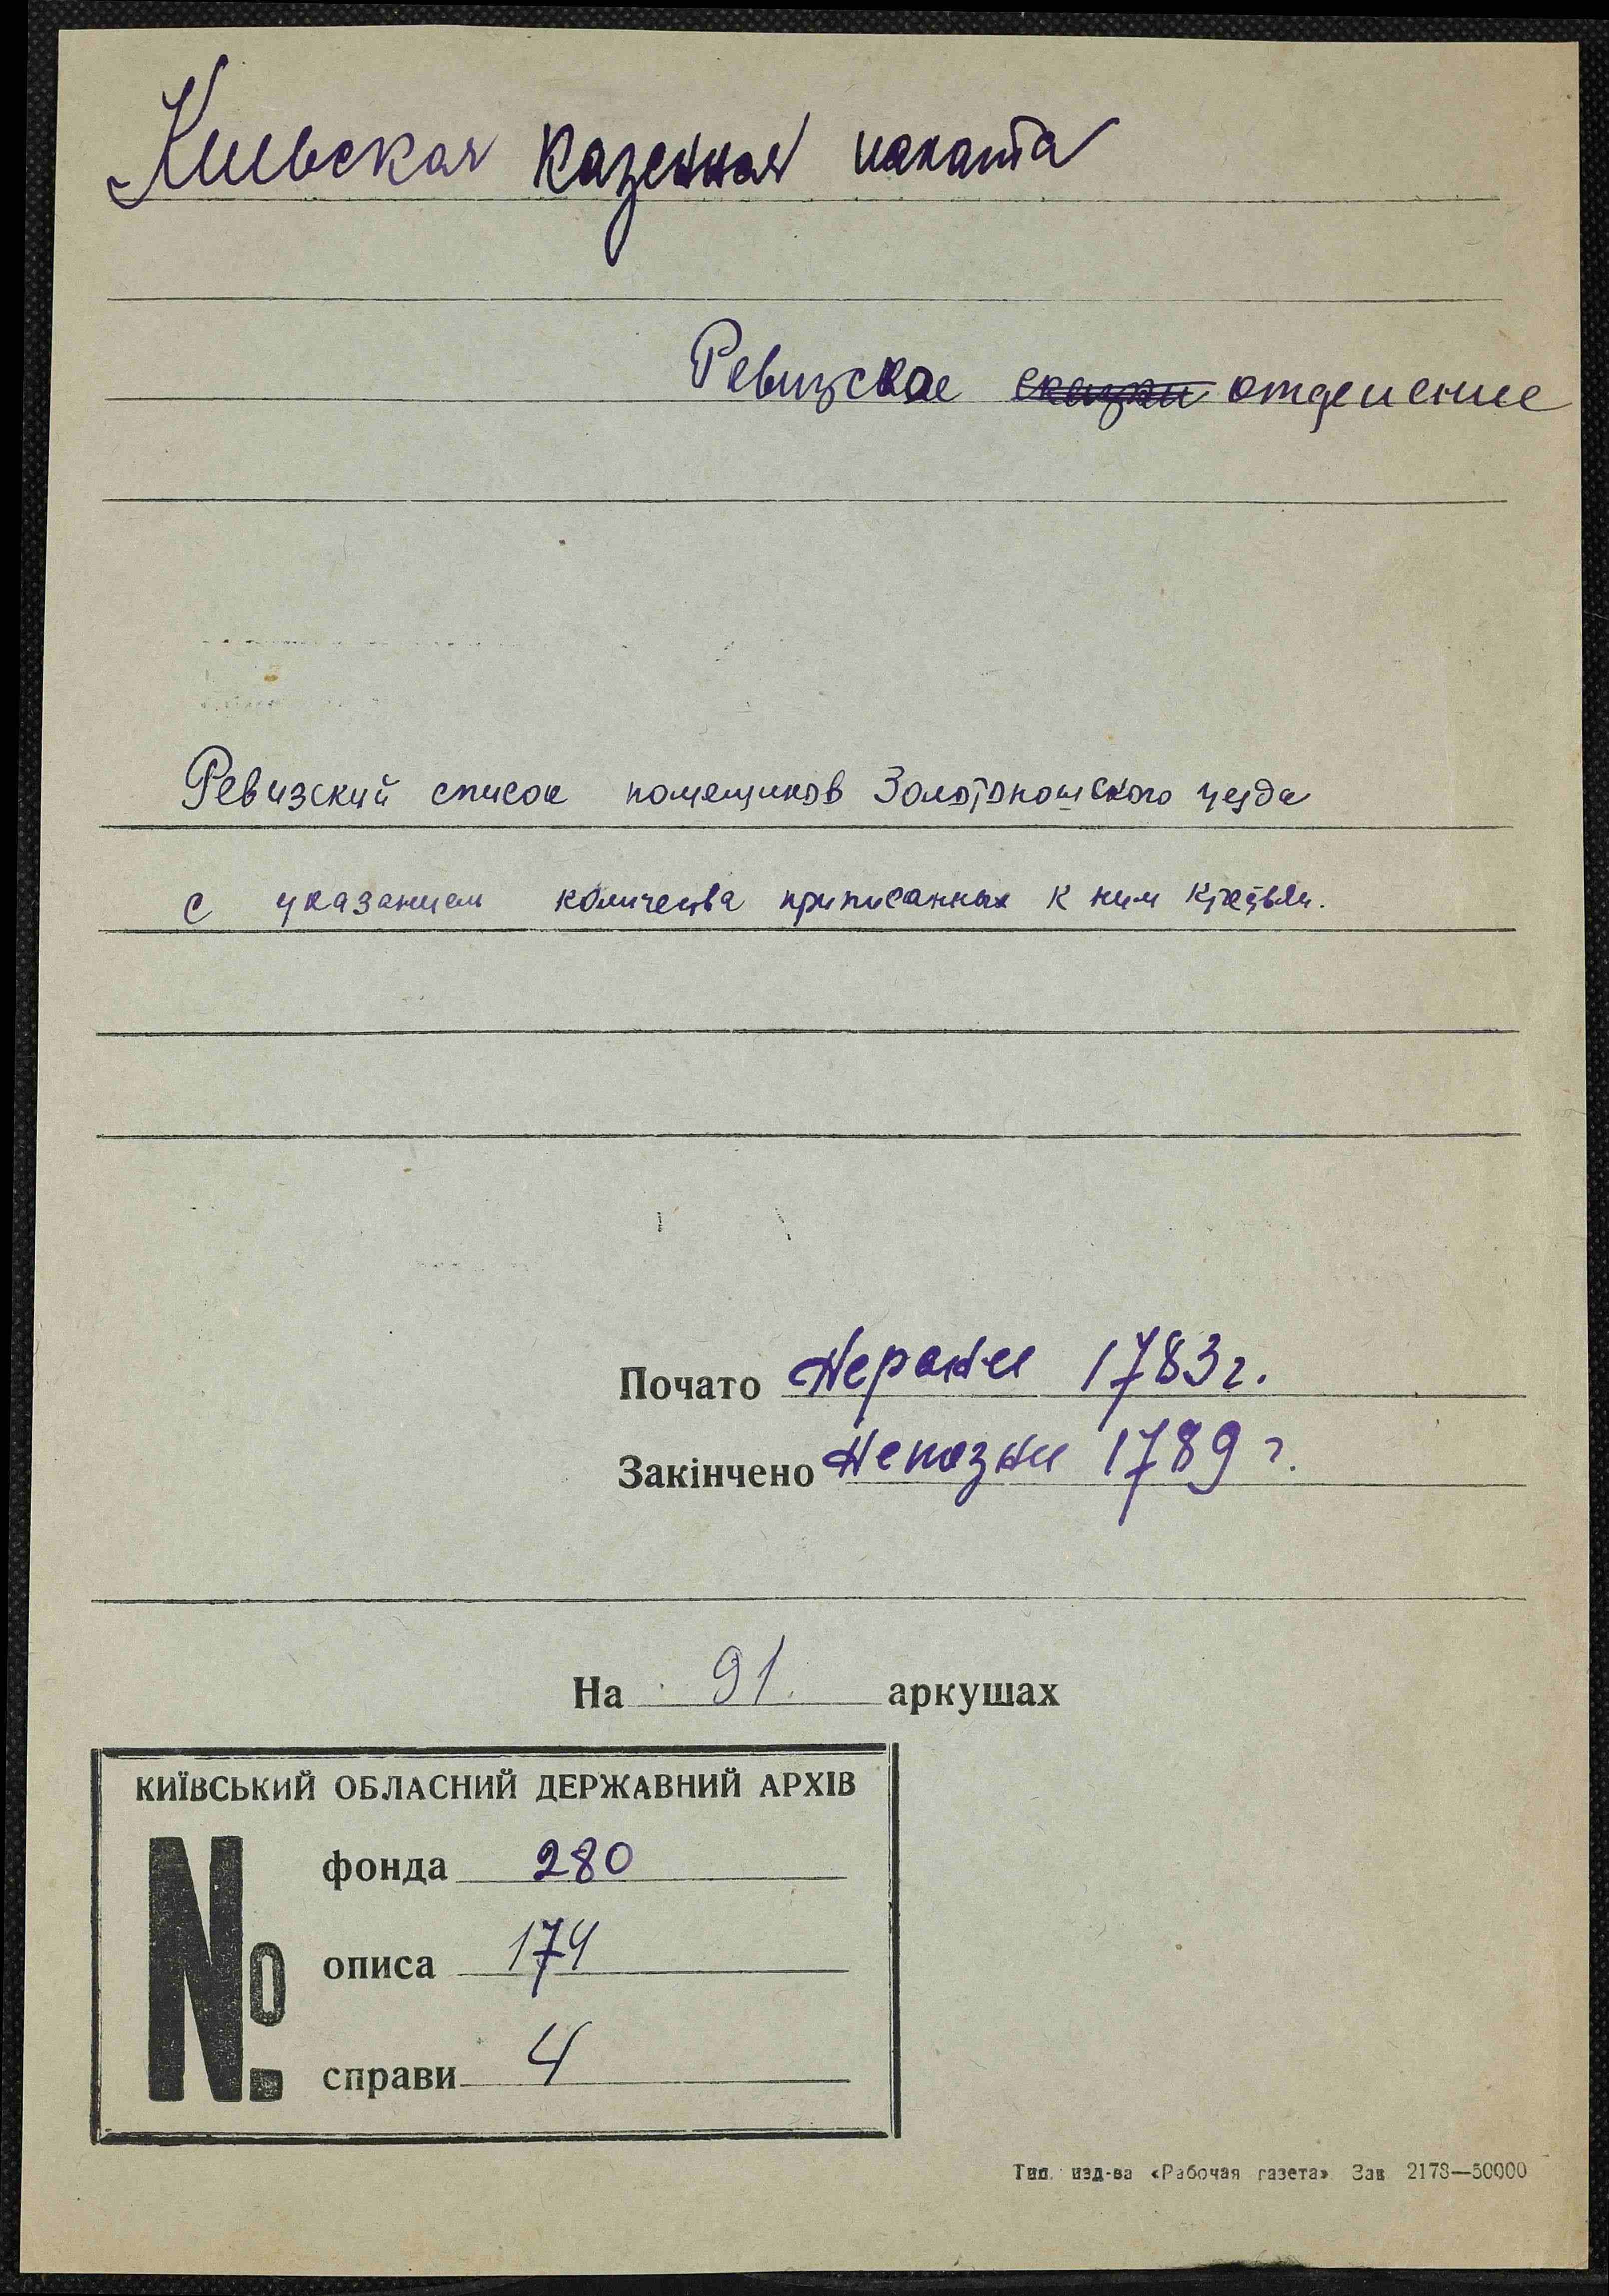 Киевская казенная палата
Ревизское сказки отделение
Ревизский список помещиков Золотоношского уезда
с указанием количества приписанных к ним крестьян.
Почато Неранее 1783 г.
Закінчено Непозже 1789 г.
На 91. аркушах
КИЇВСЬКИЙ ОБЛАСНИЙ ДЕРЖАВНИЙ АРХІВ
№ фонда 280
описа 174
справи 4
Тип. изд-ва «Рабочая газета» Зак 2178—50000